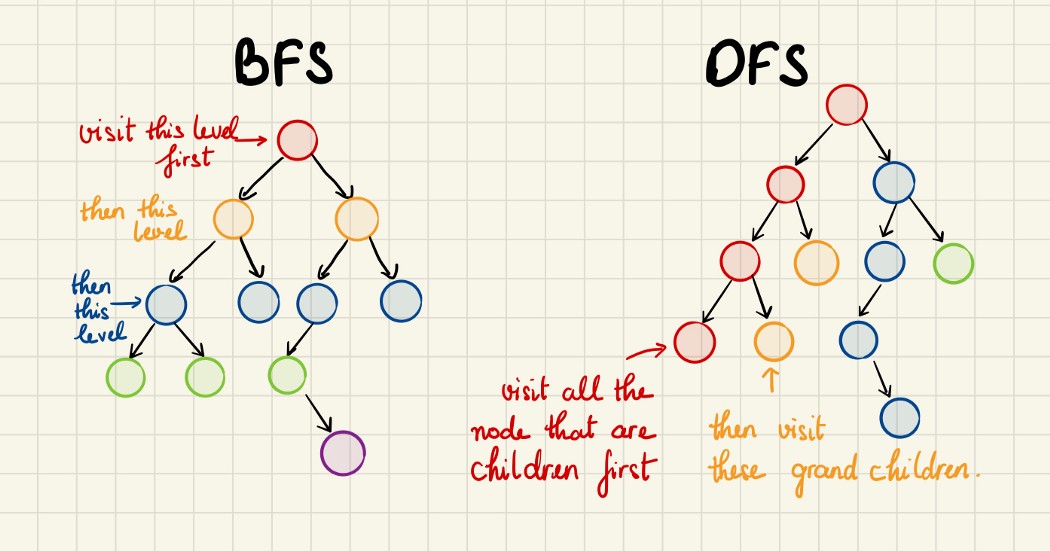 BFS
visit this level
first
then this
level
then
this
level
DFS
visit all the
node that are
children first
then visit
these grand children.